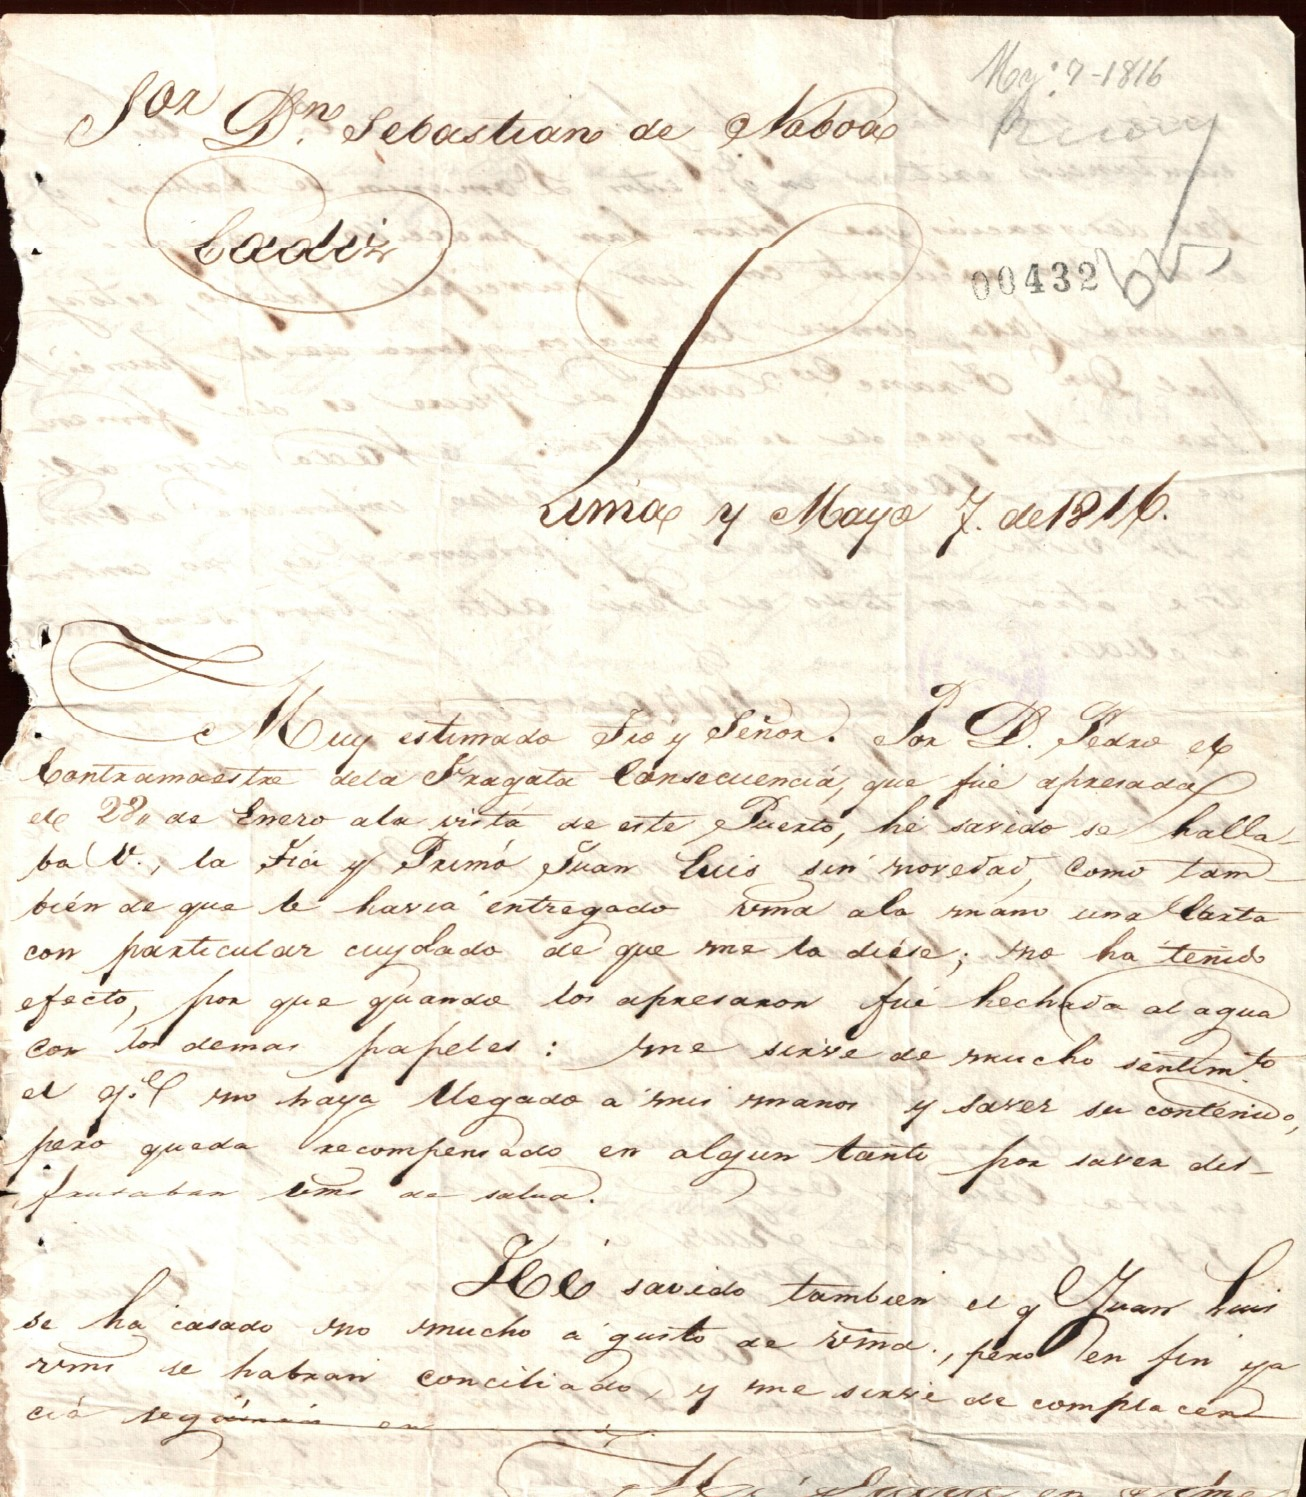 May. 7-1816
Sor Dn. Sebastian de Noboa
Cadiz
00432
Lima y Mayo 7. de 1816.
Muy estimado Tio y Señor. Por D. Pedro el
Contramaestre dela Fragata Consecuencia, que fue apresada
el 28,, de Enero ala vista de este Puerto, hé savido se halla-
ba V., la Tia y Primó Juan Luis sin novedad, como tam-
bién de que le havia entregado vmd ala mano una Carta
con particular cuydado de que me la diése; no ha tenido
efecto, por que quando los apresaron fué hechada al agua
con los demas papeles: me sirve de mucho sentimto
el q.e no haya llegado a mis manos y saver su contenido,
pero queda recompensado en algun tanto por saver dis-
frutaban vms de salud.
Hé savido tambien el q Juan Luis
se há casado no mucho á gusto de vmd., pero en fin ya
vms se habran conciliado, y me sirve de complacen-
ciá en